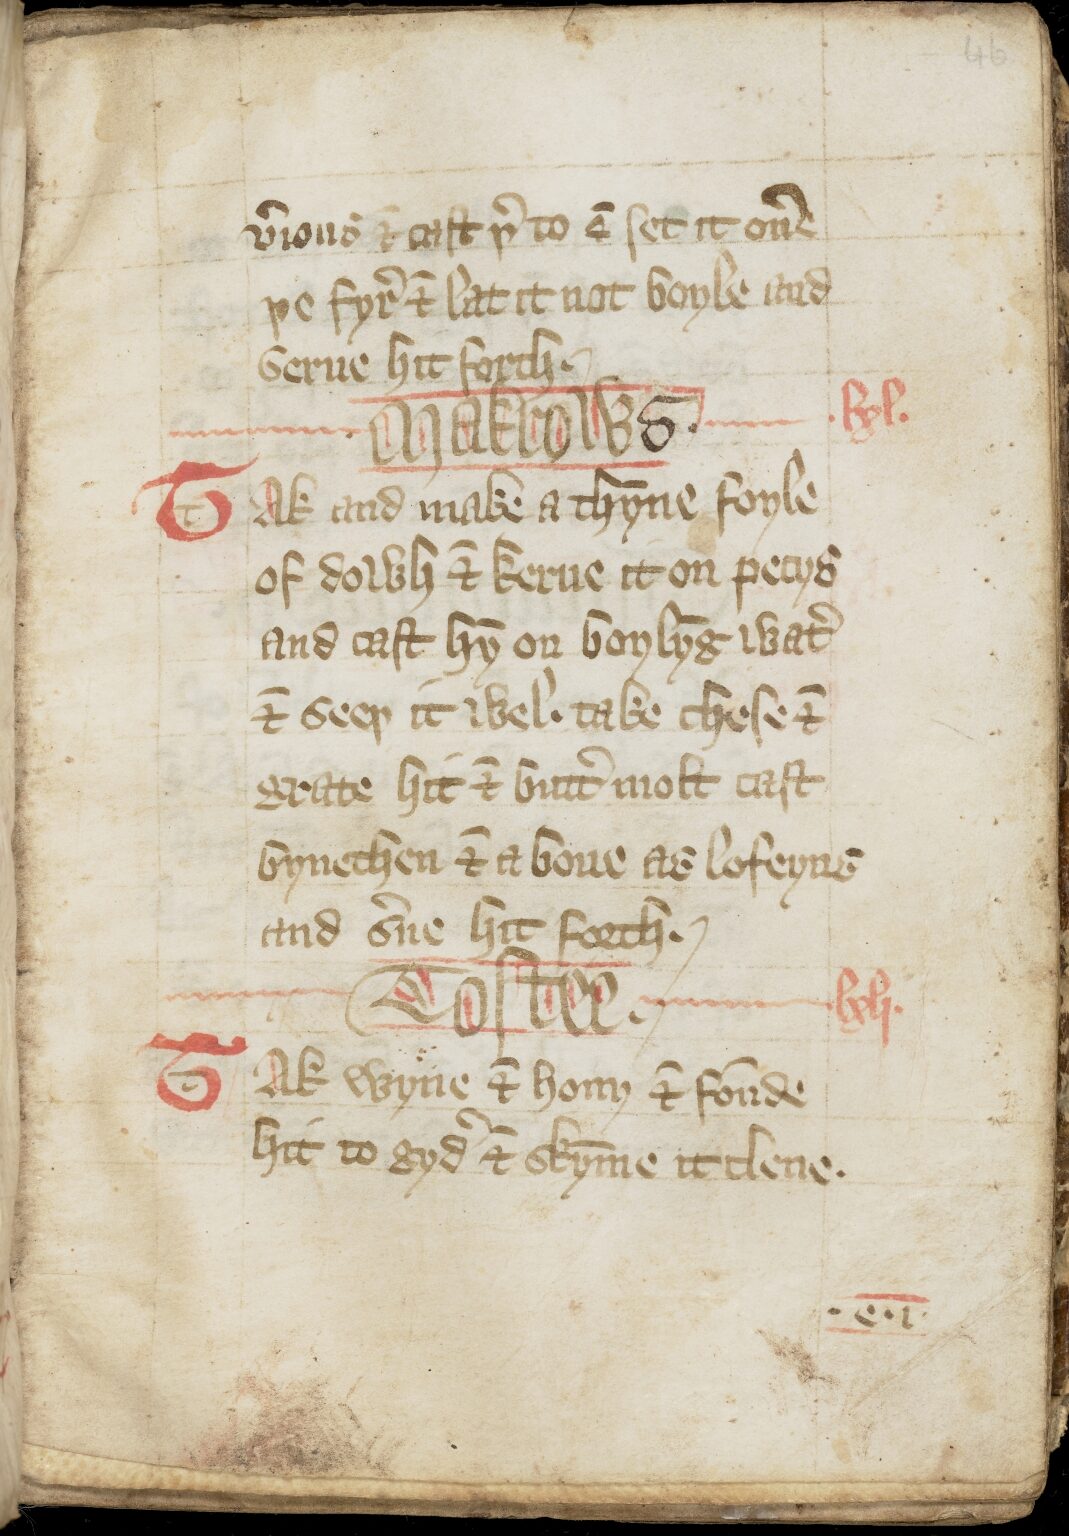 46
v̉ious ⁊ cast þ̉ to ⁊ set it oủe
þe fyr̉ ⁊ lat it not boyle and
serue hit forth.
Makrows.
Tak and make a thyn̄e foyle
of dowh ⁊ kerue it on pecys
and cast hȳ on boylȳg wat̉
⁊ seeþ it wel. take chese ⁊
grate hit ⁊ butt̉ molt cast
bynethen ⁊ a boue as loseyns
and s̉ue hit forth.
Tostee.
Tak wyne ⁊ hony ⁊ foūde
hit to gyd̉ ⁊ skym̄e it clene.
.e.i.